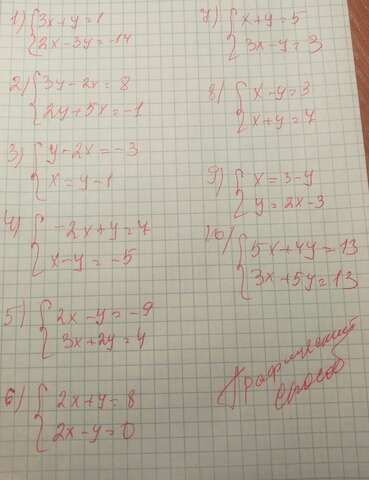 1) {3x+y=1
{2x-3y=-14
2) {3y-2x=8
{2y+5x=-1
3) {y-2x=-3
{x=y-1
4) {-2x+y=7
{x-y=-5
5) {2x-y=-9
{3x+2y=4
6) {2x+y=8
{2x-y=0
7) {x+y=5
{3x-y=3
8) {x-y=3
{x+y=7
9) {x=3-y
{y=2x-3
10) {5x+4y=13
{3x+5y=13
Графический
способ